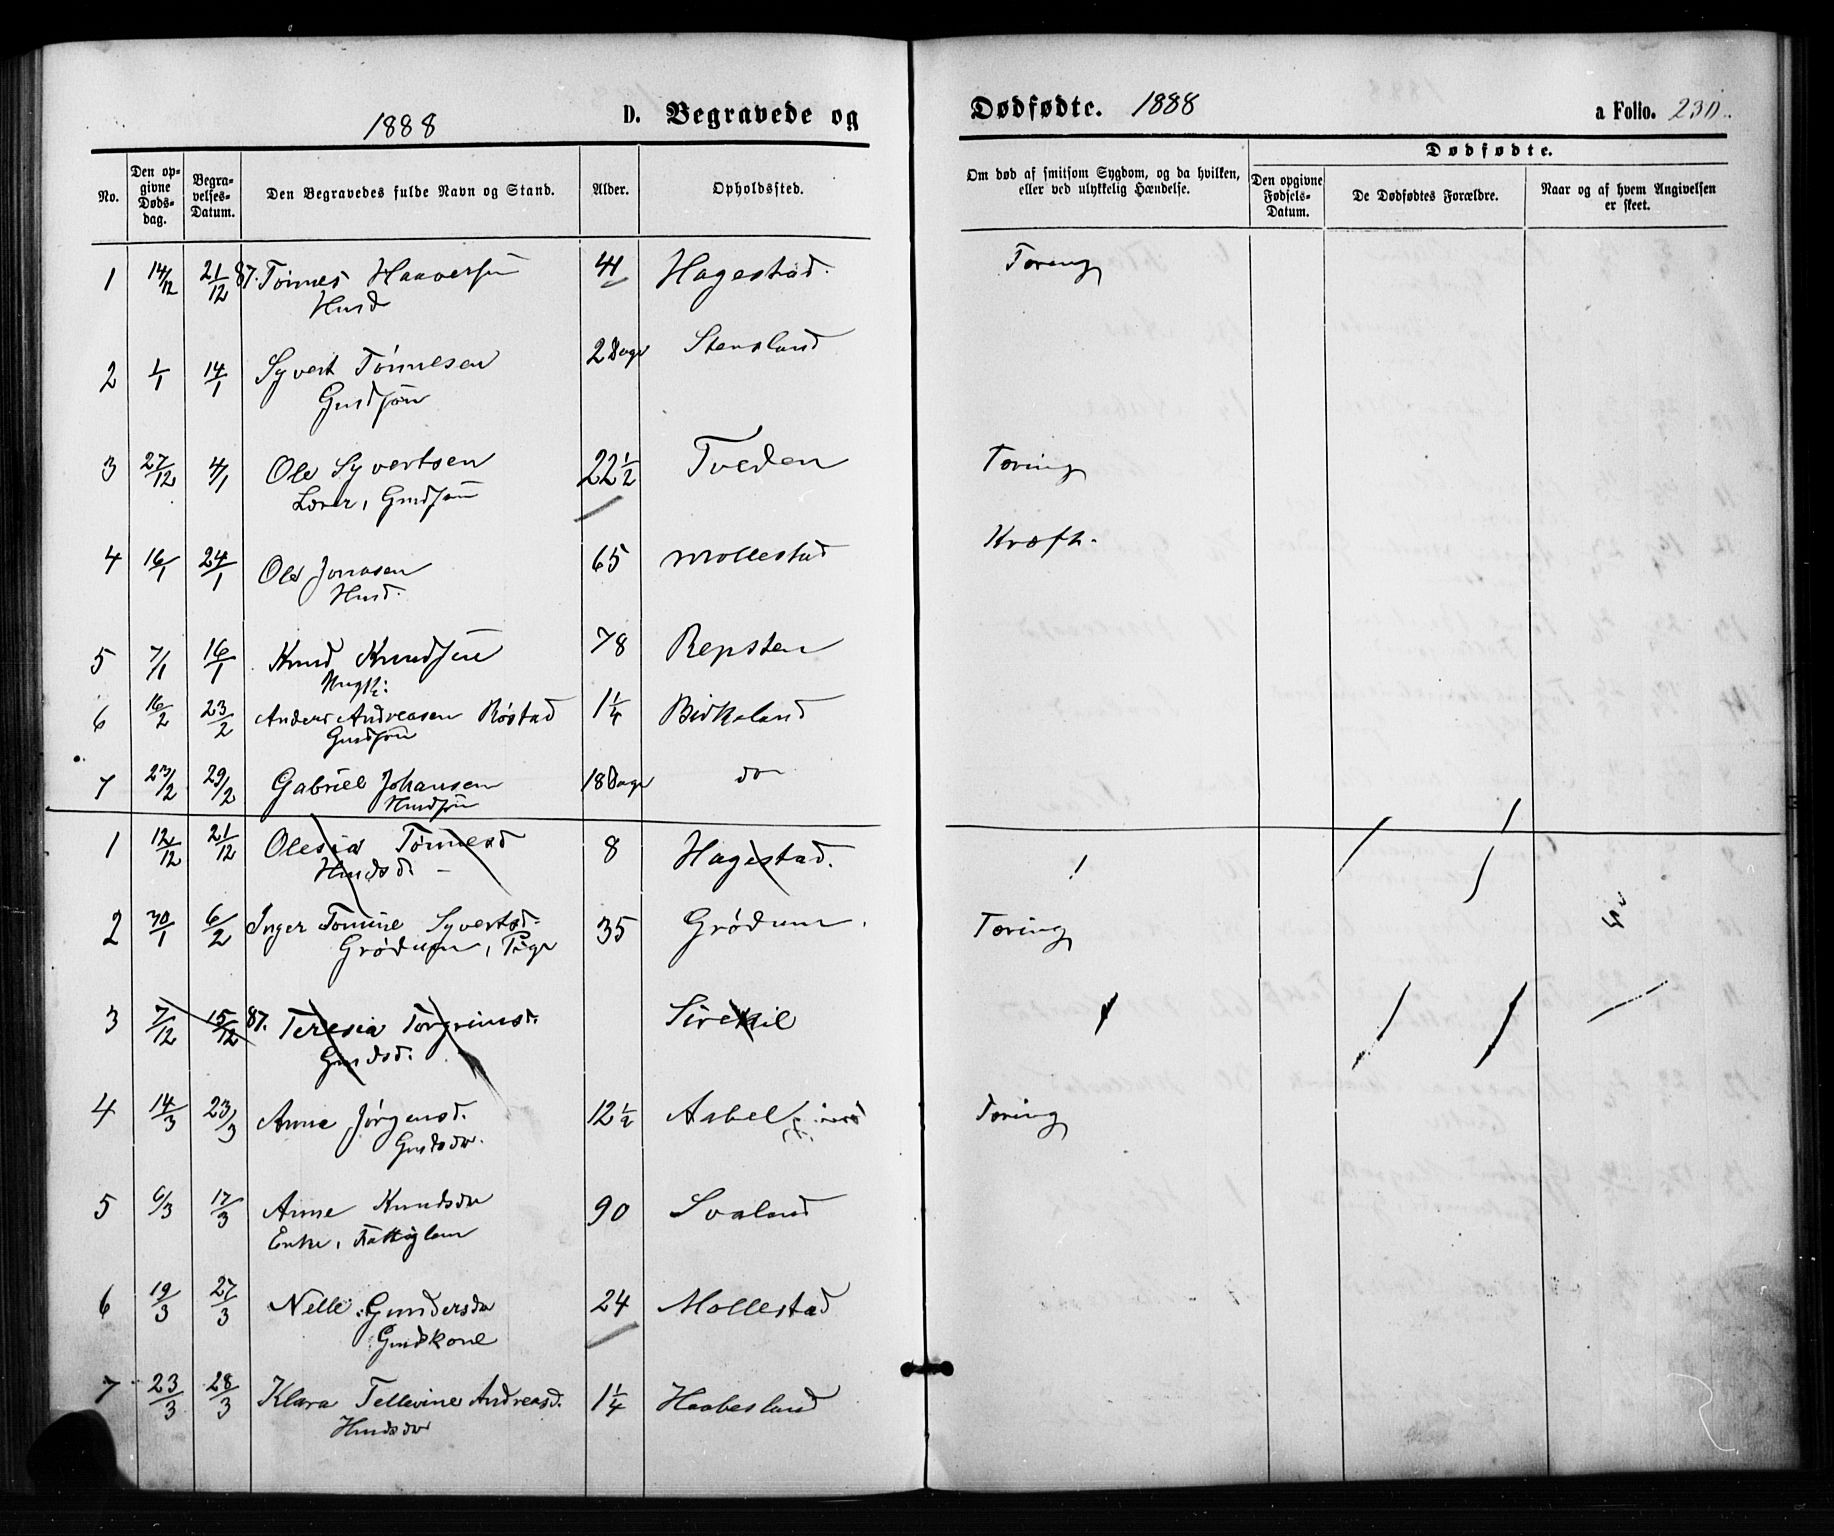 1888 D. Begravede og
Dødfødte. 1888 a Folio. 230.
No. Den opgivne Dødsdag. Begravelses-Datum. Den Begravedes fulde Navn og Stand. Alder. Opholdssted.
Om død af smitsom Sygdom, og da hvilken, eller ved ulykkelig Hændelse. Dødfødte. Den opgivne Fødsels-Datum. De Dødfødtes Forældre. Naar og af hvem Angivelsen er skeet.
1 14/12 21/12 87. Tønnes Haaversen 41 Hagestad. Tæring
Husd
2 1/1 14/1 Syvert Tønnesen 2 Dage Stensland
Gmdsøn
3 27/12 4/1 Ole Syvertsen 22 1/2 Tveden Tæring
Lærer, Gmdsøn
4 16/1 24/1 Ole Jonasen 65 Mollestad Kræft.
Husd.
5 7/1 16/1 Knud Knudsen 78 Repsten
Ungk:
6 16/2 23/2 Anders Andreasen Røstad 1 1/4 Birkeland
Gmdsøn
7 23/2 29/2 Gabriel Johansen 18 Dage do
Husdsøn
1 12/12 21/12 Olesia Tønnesd 8 Hagestad.
Husdsd.
2 30/1 6/2 Inger Tomine Syvertsd. 35 Grødum. Tæring
Grødum, Pige
3 7/12 15/12 87. Teresia Torgrimsd. Sirekil
Gmdsd.
4 14/3 23/3 Anne Jørgensd. 12 1/2 Aabel Tæring
Gmdsdr.
5 6/3 17/3 Anne Knudsdr 90 Svaland
Enke, Fattiglem
6 19/3 27/3 Nelle Gundersdr 24 Mollestad
Gmdkone
7 23/3 28/3 Klara Tellevine Andreasd. 1 1/4 Haabesland
Husdsdr